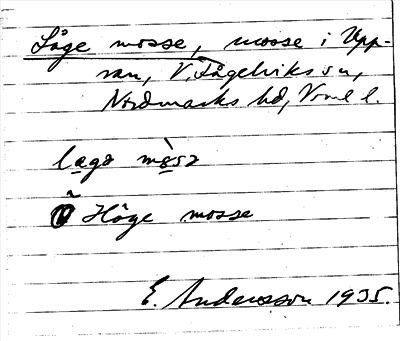 Låge mosse, mosse i Upp-
ran, V. Fågelviks sn,
Nordmarks hd, Vrml l.
lægə mɷsə
Höge mosse
E. Andersson 1935.